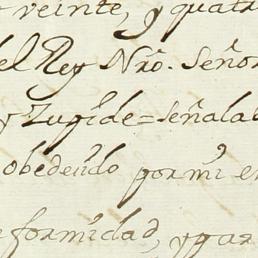 veinte, y quatr
el Rey Nrō. Señor
y Zup̄ide = señalal
obedecīdo por mi e
formidad, y gar